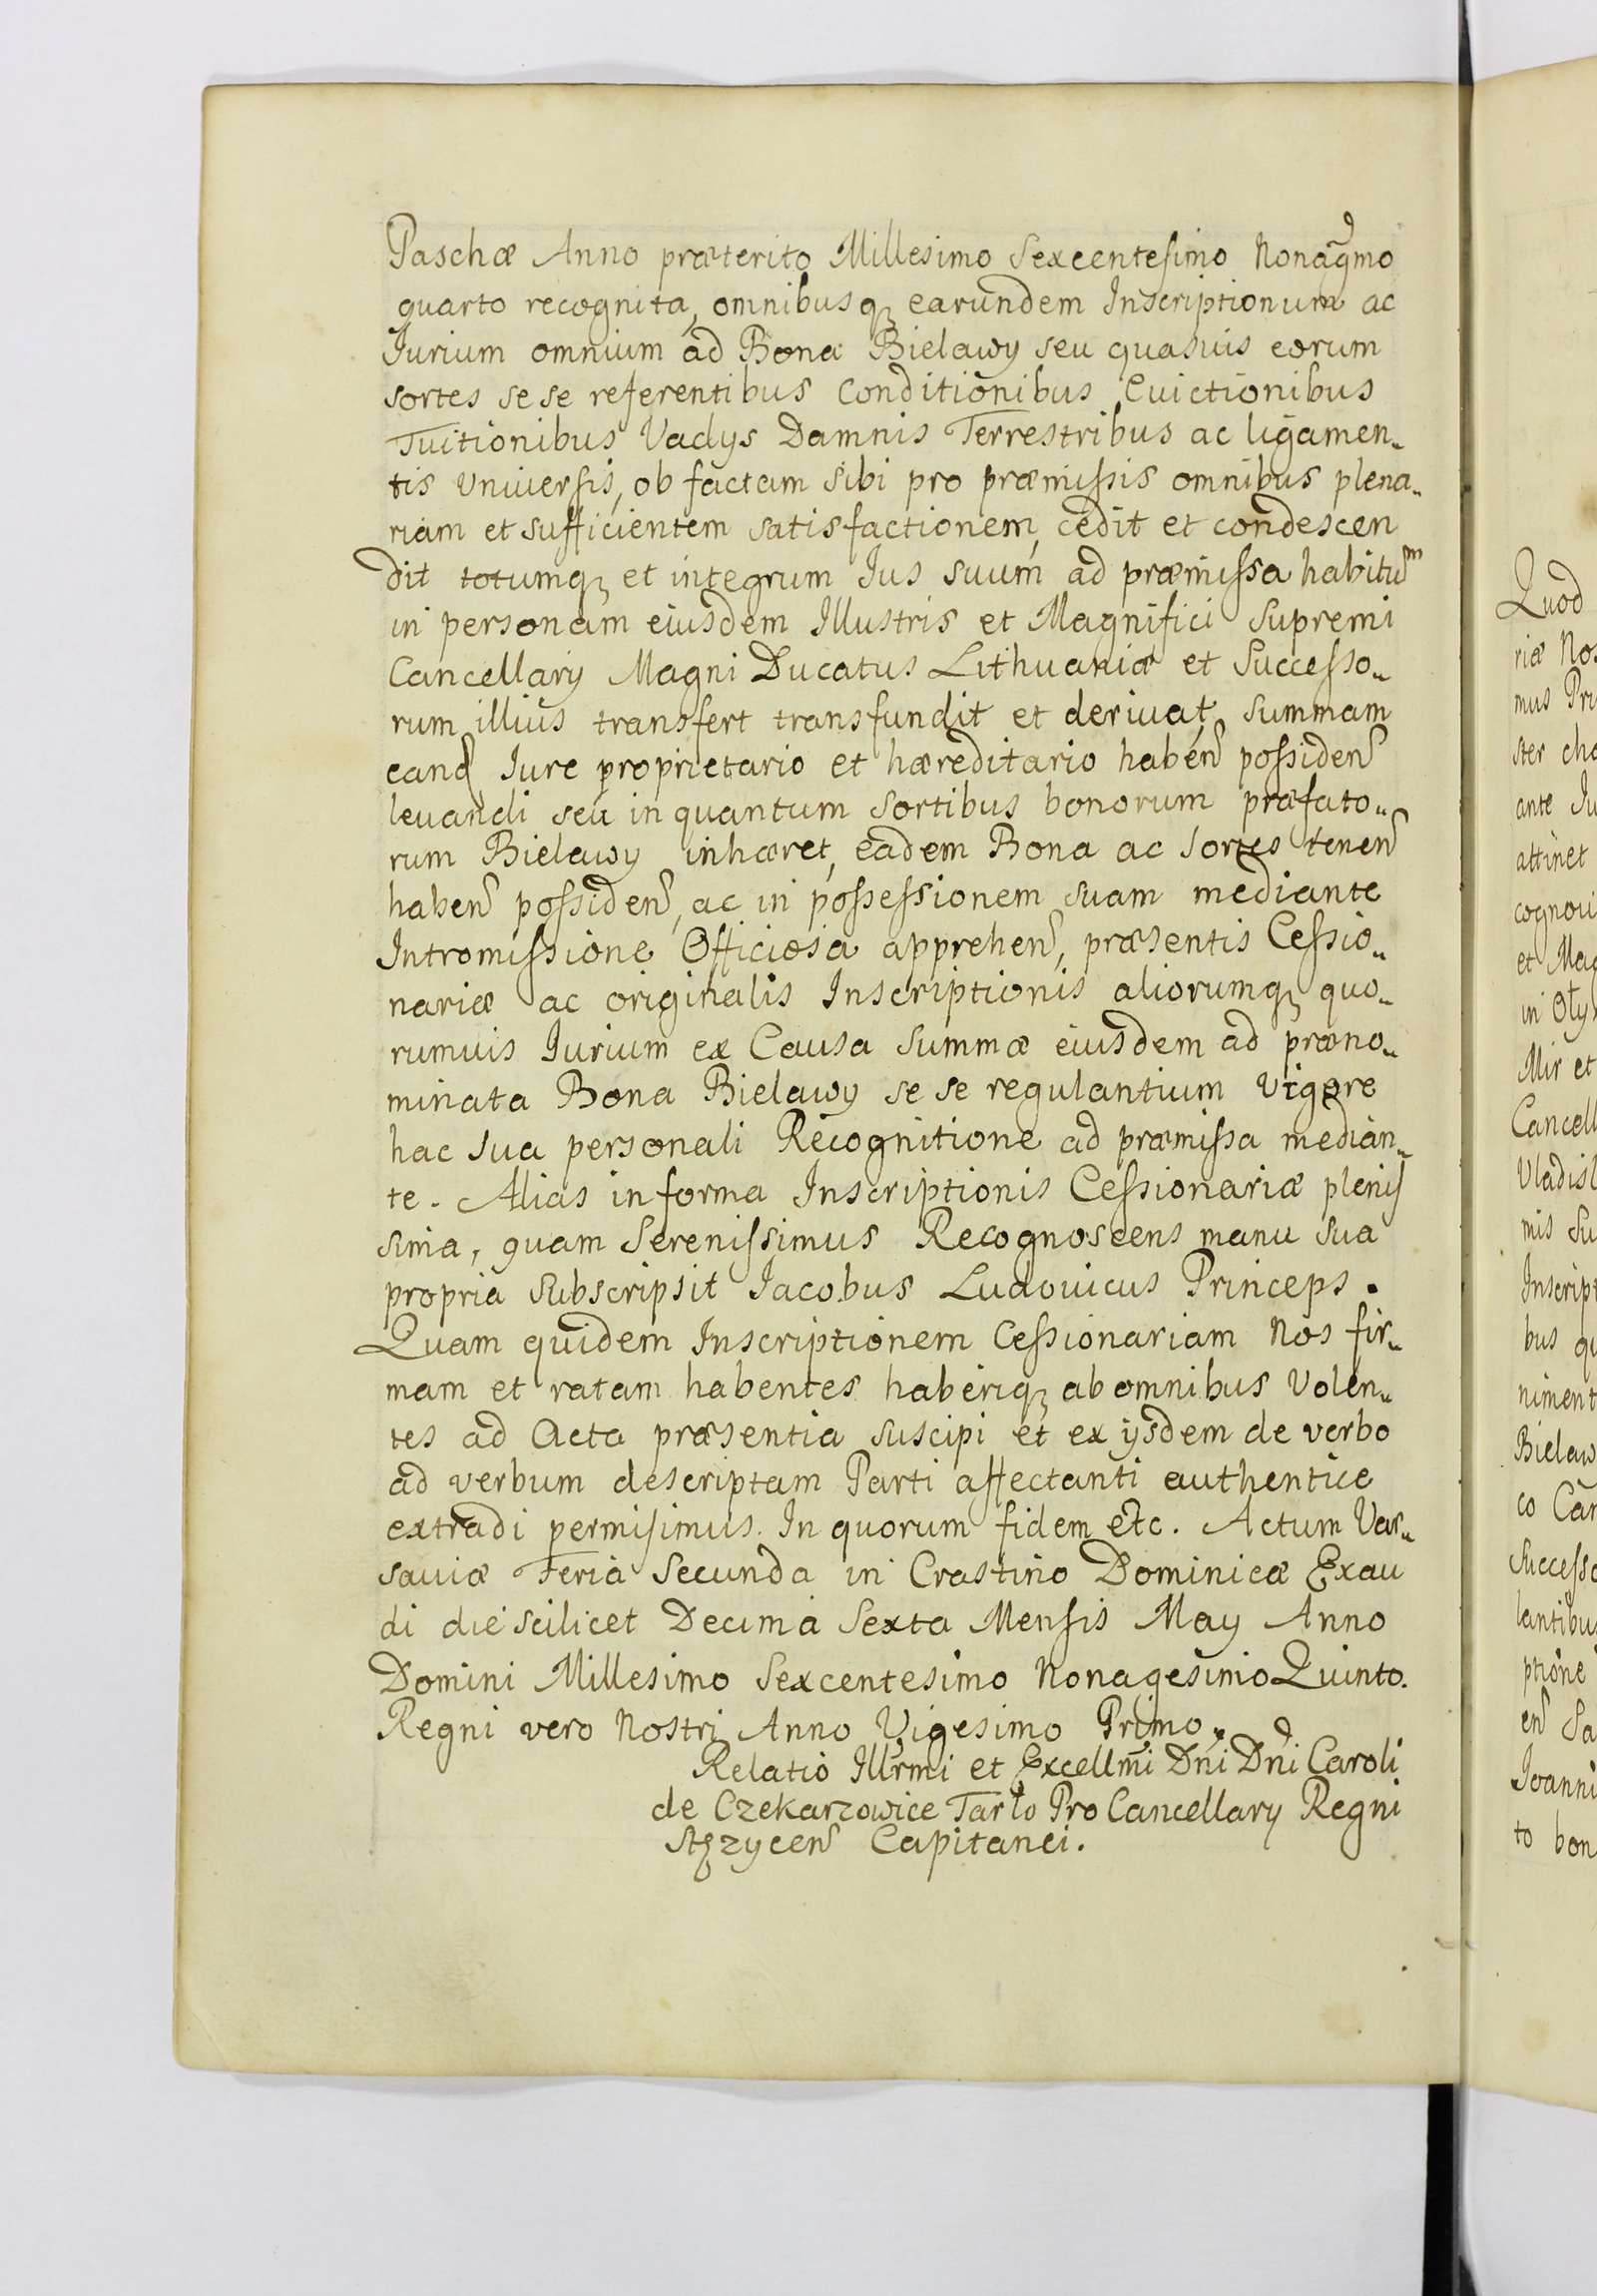 Paschæ Anno præterito Millesimo Sexcentesimo Nonagmo
quarto recognita, omnibusq earundem Inscriptionum ac
Iurium omnium ad Bona Bielawy seu quasuis eorum
sortes sese referentibus Conditionibus Euictionibus
Tuitionibus Vadys Damnis Terrestribus ac ligamen-
tis Vniuersis, ob factam sibi pro præmissis omnibus plena-
riam et sufficientem satisfactionem, cedit et condescen
dit totumq et integrum Ius suum ad præmissa habitum
in personam eiusdem Illustris et Magnifici Supremi
Cancellarÿ Magni Ducatus Lithuaniæ et Successo-
rum illius transfert transfundit et deriuat, summam
eand Iure proprietario et hæreditario haben possiden
leuandi seu in quantum sortibus bonorum præfato-
rum Bielawy inhæret, eadem Bona ac Sortes tenen
haben possiden, ac in possessionem suam mediante
Intromissione Officiosa apprehen, præsentis Cessio-
nariæ ac originalis Inscriptionis aliorumq quo-
rumuis Iurium ex Causa Summæ eiusdem ad præno-
minata Bona Bielawy se se regulantium Vigore
hac sua personali Recognitione ad præmissa median-
te. Alias in forma Inscriptionis Cessionariæ plenis
sima, quam Serenissimus Recognoscens manu sua
propria Subscripsit Iacobus Ludouicus Princeps.
Quam quidem Inscriptionem Cessionariam Nos fir-
mam et ratam habentes haberiq ab omnibus Volen-
tes ad Acta præsentia suscipi et ex ijsdem de verbo
ad verbum descriptam Parti affectanti authentice
extradi permisimus. In quorum fidem etc. Actum Var-
sauiæ Feria Secunda in Crastino Dominicæ Exau
di die scilicet Decima Sexta Mensis May Anno
Domini Millesimo Sexcentesimo Nonagesimo Quinto.
Regni vero Nostri Anno Vigesimo Primo.
Relatio Illrmi et Excellmi Dni Dni Caroli
de Czekarzowice Tarło Pro Cancellarÿ Regni
Stęzycen Capitanei.
Quod
riæ Nos
mus Pri
ster cha
ante Iu
attinet
cognoui
et Mag
in Oły
Mir et
Cancell
Vladisl
mis Su
Inscript
bus qu
niment
Bielaw
co Can
Successo
lantibus
ptione
en Sa
Ioanni
to bon